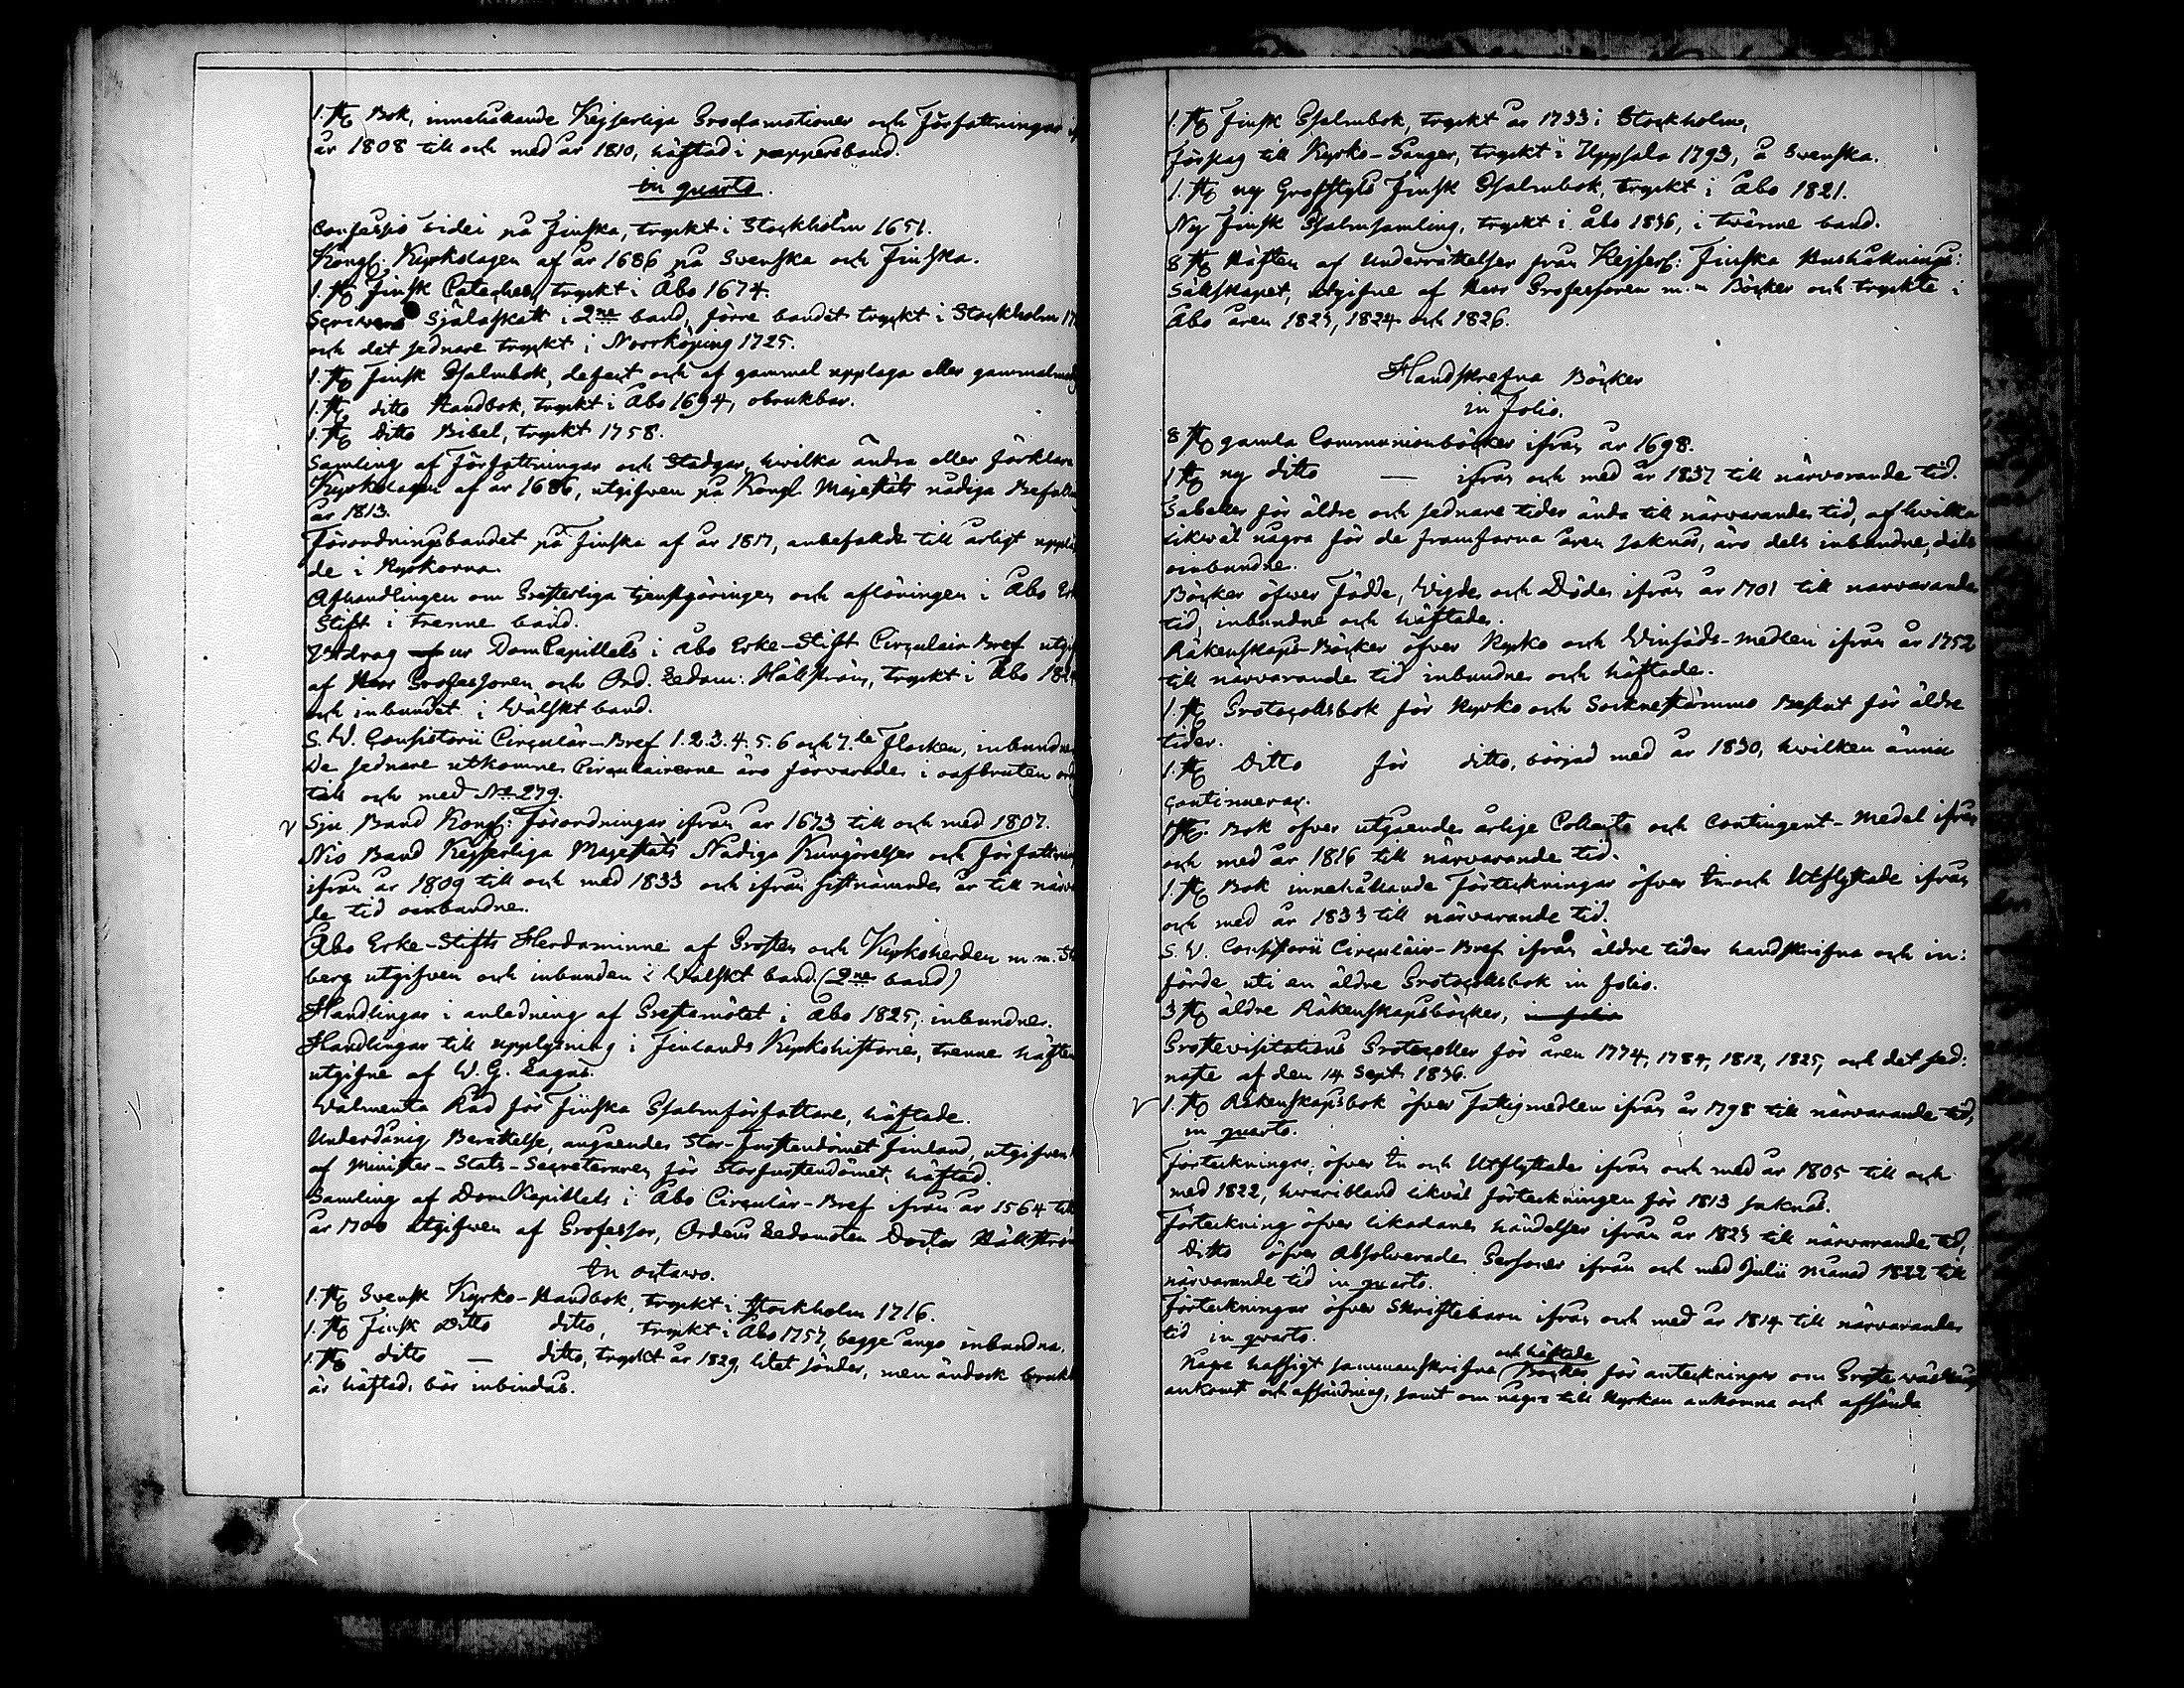 1. st. Bok, innehållande Kejserliga Proclamationer och Författningar
år 1808 till och med år 1810, häftad i pappersband.
in quarto.
Confessio Fidei på Finska, tryckt i Stockholm 1651.
Kongl: Kyrkolagen af år 1686 på Swenska och Finska.
1. st. Finsk Cateches, tryckt i Åbo 1674.
Scrivers Själaskatt i 2ne band, förre bandet tryckt i Stockholm
och det sednare tryckt i Norrköping 1725.
1. st. Finsk Psalmbok, defect och af gammal upplaga eller
1. st. ditto Handbok, tryckt i Åbo 1694, obrukbar.
1. st. Ditto Bibel, tryckt 1758.
Samling af Författningar och Stadgar, hwilka ändra eller förklara
Kyrkolagen af år 1686, utgifwen på Kongl. Majestäts nådiga
år 1813.
Förordningsbandet på Finska af år 1817, anbefaldt till årligt
de i Kyrkorna.
Afhandlingen om Presterliga tjenstgöringen och aflöningen i Åbo
Stift i trenne band.
Utdrag af ur DomCapitlets i Åbo Erke-Stift Circulair-Bref
af Herr Professoren och Ord. Ledam: Hällström, tryckt i Åbo
och inbundet i Wälskt band.
S. V. Consistorii Circulär-Bref 1. 2. 3. 4. 5. 6 och 7.de Flocken,
De sednare utkomne Circulairerne äro förvarade i oafbruten
till och med No 279.
Sju Band Kongl: Förordningar ifrån år 1673 till och med 1807.
Nio Band Kejserliga Majestäts Nådiga Kungörelser och
ifrån år 1809 till och med 1833 och ifrån sistnämnde år till
de tid oinbundne.
Åbo Erke-Stifts Herdaminne af Prosten och Kyrkoherden m. m.
berg utgifven och inbunden i Wälskt band. (2ne band)
Handlingar i anledning af Prestamötet i Åbo 1825, inbundne.
Handlingar till upplysning i Finlands Kyrkohistorie, trenne häften
utgifne af W. G. Lagus.
Wälmenta Råd för Finska Psalmförfattare, häftade.
Underdånig Berättelse, angående Stor-Furstendömet Finland, utgifven
af Minister-Stats-Secreteraren för Storfurstendömet, häftad.
Samling af DomKapitlets i Åbo Circulär-Bref ifrån år 1564 till
år 1700 utgifwen af Professor, Ordens Ledamoten Doctor Hällström
in octavo.
1. st. Svensk Kyrko-Handbok, tryckt i Stockholm 1716.
1. st. Finsk Ditto ditto, tryckt i Åbo 1757, begge ungo inbundna.
1. st. ditto — ditto, tryckt år 1829, litet sönder, men ändock
är häftad, bör inbindas.
1. st. Finsk Psalmbok, tryckt år 1733 i Stockholm,
Förslag till Kyrko-Sånger, tryckt i Uppsala 1793, å Swenska.
1. st. ny Grofstyls Finsk Psalmbok, tryckt i Åbo 1821.
Ny Finsk Psalmsamling, tryckt i Åbo 1836, i twänne band.
8 st. Häften af Underrättelser från Kejserl: Finska Hushållnings:
Sällskapet, utgifne af Herr Professoren m.m Böcker och tryckte i
Åbo åren 1823, 1824 och 1826.
Handskrefna Böcker
in Folio.
8 st. gamla Communionböcker ifrån år 1698.
1 st. ny ditto — ifrån och med år 1837 till närvarande tid.
Tabeller för äldre och sednare tider ända till närvarande tid, af hwilka
likwäl några för de framfarna åren saknas, äro dels inbundne, dels
oinbundne.
Böcker öfwer Födde, Vigde och Döde ifrån år 1701 till närvarande
tid, inbundne och häftade.
Räkenskaps-Böcker öfver Kyrko och Vinsäds-medlen ifrån år 1752
till närvarande tid inbundne och häftade.
1. st. Protocollsbok för Kyrko och Socknestämmo Beslut för äldre
tider.
1. st. Ditto för ditto, börjad med år 1830, hwilken ännu
continuerar.
1 st. Bok öfver utgående årlige Collects och Contingent-Medel ifrån
och med år 1816 till närvarande tid.
1. st. Bok innehållande Förteckningar öfver In och Utflyttade ifrån
och med år 1833 till närvarande tid.
S. V. Consistorii Circulair-Bref ifrån äldre tider handskrifna och in:
förde uti en äldre Protocollsbok in folio.
3 st. äldre Räkenskapsböcker, in folio
Prostevisitations Protocoller för åren 1774, 1784, 1812, 1825, och det sed:
naste af den 14 Sept. 1836.
1. st. Räkenskapsbok öfver Fattigmedlen ifrån år 1798 till närvarande tid,
in quarto.
Förteckningar öfver In och Utflyttade ifrån och med år 1805 till och
med 1822, hwaribland likväl förteckningen för 1813 saknas.
Förteckning öfver likadane händelser ifrån år 1823 till närvarande tid,
Ditto öfver Absolverade Personer ifrån och med Julii Månad 1822 till
närvarande tid in quarto.
Förteckningar öfver Skriftebarn ifrån och med år 1814 till närvarande
tid in quarto.
och häftade
sammanskrifne Böcker för anteckningar om
ankomst och afsändning, samt om några till Kyrkan ankomna och afsända